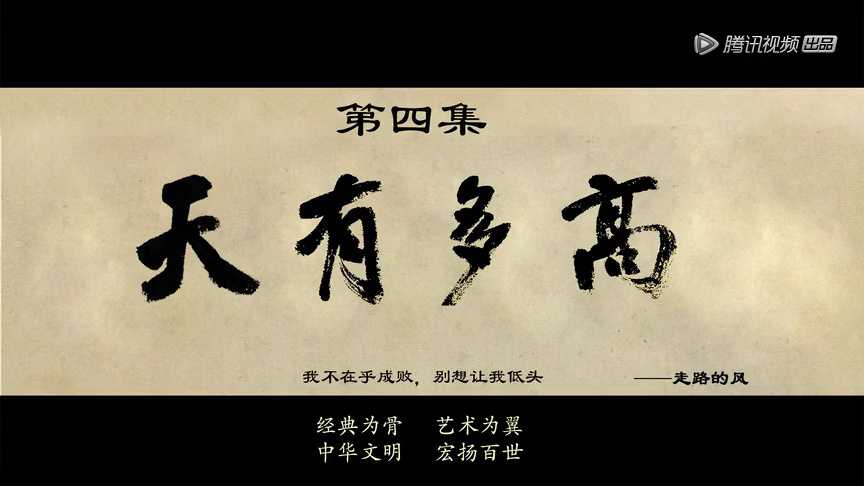 腾讯视频 出品
第四集
天有多高
我不在乎成败，别想让我低头 ——走路的风
经典为骨 艺术为翼
中华文明 宏扬百世